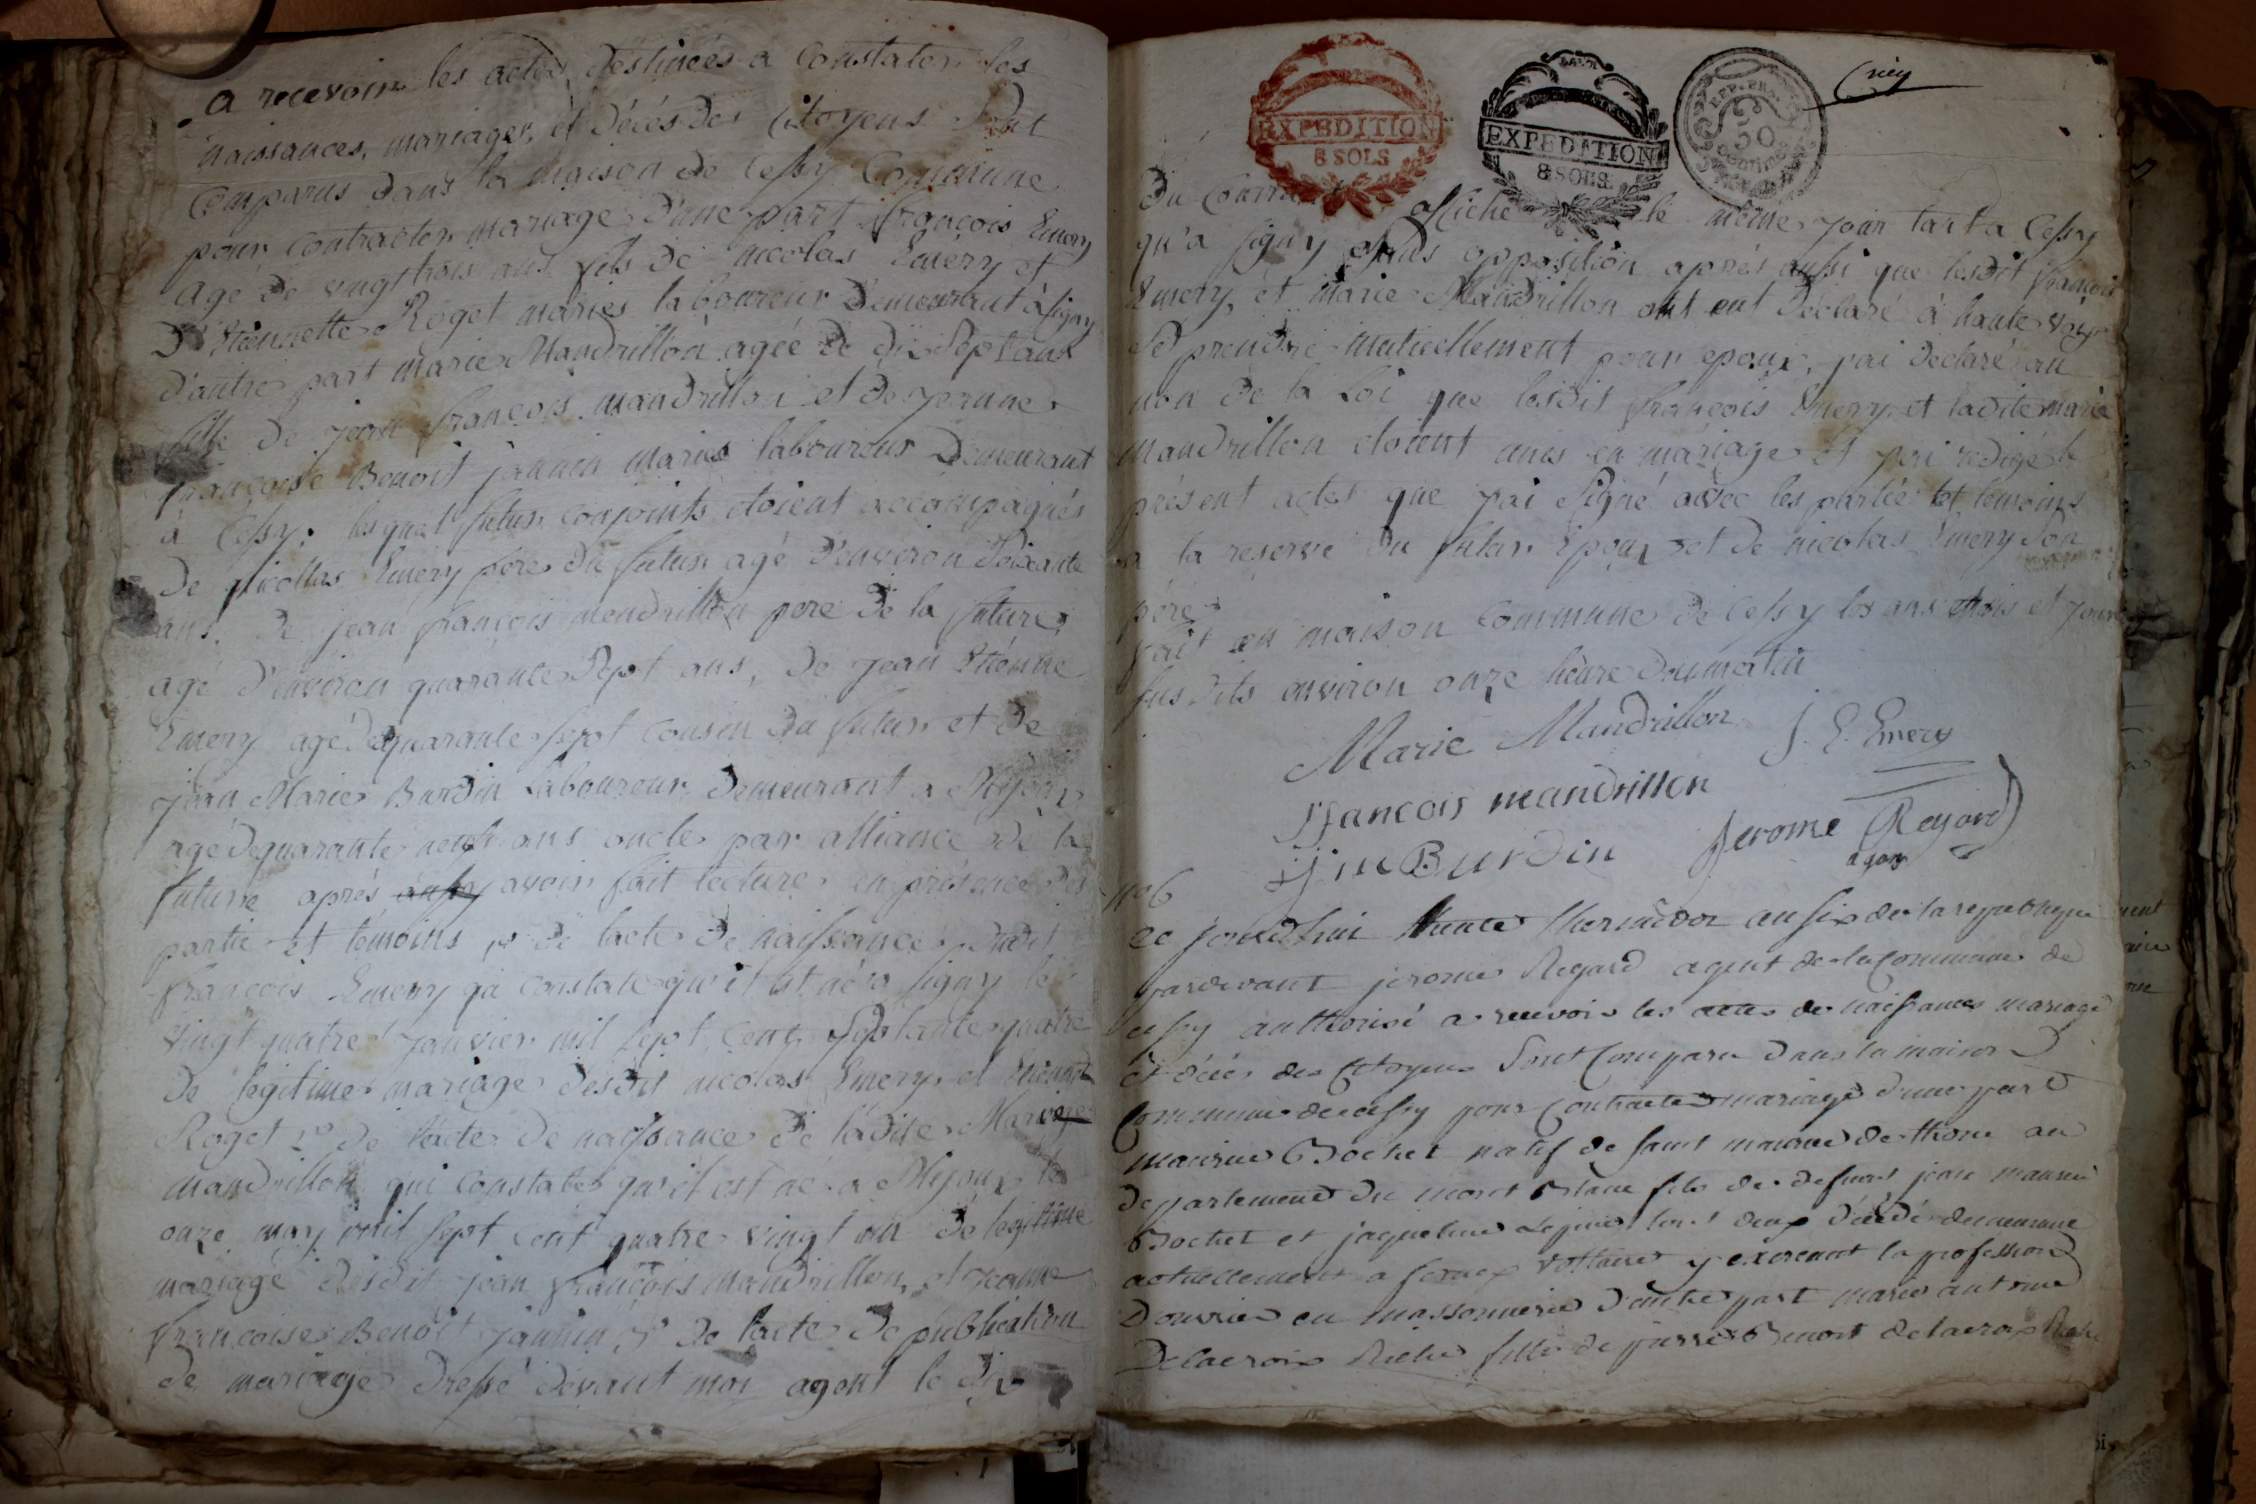 a recevoir les actes destinées a Constater les
naissances, mariages, et décés des Citoyens sont
Comparus dans la maison de Cessy Commune
pour contracter mariage d'une part françois Emery
agé de vingt trois ans fils de nicolas Emery et
d'Etiennette Roget mariés laboureur demeurant à Signy
d'autre part marie Mandrillon agée de dix sept ans
fille de jean françois mandrillon et de jeanne
françoise Benoit jannin mariés laboureur demeurant
à Cessy, lesquel futur conjoints etoient accompagnés
de nicollas Emery pere du futur agé d'environ soixante
ans, de jean françois mendrillon pere de la future
agé d'environ quarante sept ans, de jean Etienne
Emery agé de quarante sept cousin du futur et de
jean Marie Burdin laboureur demeurant a Mijoux
agé de quarante neuf ans oncle par alliance de la
future aprés aussy avoir fait lecture en présence des
partie et témoins 1° de lacte de naissance dudit
françois Emery qui constate qu'il est né a Signy le
vingt quatre janvier mil sept cent septante quatre
de légitime mariage desdit nicolas Emery et Etiennette
Roget 2° de l'acte de naissance de ladite Marie
mandrillon qui constate qu'il est né a Mijoux le
onze may mil sept cent quatre vingt un de légitime
mariage desdit jean françois mandrillon et jeanne
françoise Benoit jannin 3° de lacte de publication
de mariage dressé devant moi agent le dix
EXPEDITION
8 SOLS
EXPEDITION
8 SOLS
REP. FRA.
50
centimes
du Courrant affiché le même jour tant a Cessy
qu'a Signy sans opposition aprés aussi que lesdit françois
Emery et marie Mandrillon ont eut déclaré à haute voix
se prendre mutuellement pour epoux, j'ai déclaré au
nom de la Loi que lesdit françois Emery et ladite marie
mandrillon etoient unis en mariage et j'ai redigé le
présent acte que j'ai signé avec les partie et temoins
a la reserve du futur Epoux et de nicolas Emery son
pére
fait en maison Commune de Cessy les ans mois et jour
susdits environ onze heure du matin
Marie Mandrillon J. E. Emery
françois mandrillon
jm Burdin Jerome Regard
agent
n° 6
ce jourdhui trente thermidor an six de la republique
pardevant jerome Regard agent de la Commune de
cessy authorisé a recevoir les actes de naissances mariage
et décés des Citoyens sont Comparu dans la maison
Commune de cessy pour Contracter mariage d'une part
maurice Bochet natif de saint maurice de thone au
departement du mont Blanc fils de defunt jean maurice
Bochet et jaqueline tous deux décédé demeurant
actuellement a fernex voltaire y exercant la profession
d'ouvrier en massonnerie d'autre part marie antoine
Delacroix Riche fille de pierre Benoit delacroix Riche